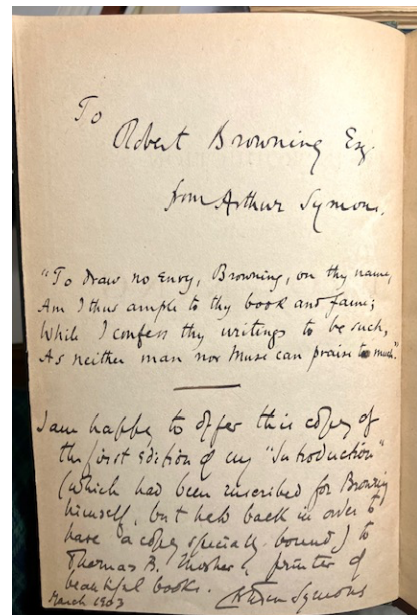 To
Robert Browning Esq.
from Arthur Symons.
"To draw no envy, Browning, on thy name,
Am I thus ample to thy book and fame;
While I confess thy writings to be such,
As neither man nor Muse can praise too much."
I am happy to offer this copy of
the first edition of my "Introduction"
(which had been inscribed for Browning
himself, but held back in order to
have a copy specially bound) to
Thomas B. Mosher, printer of
beautiful books. Arthur Symons
March 1903